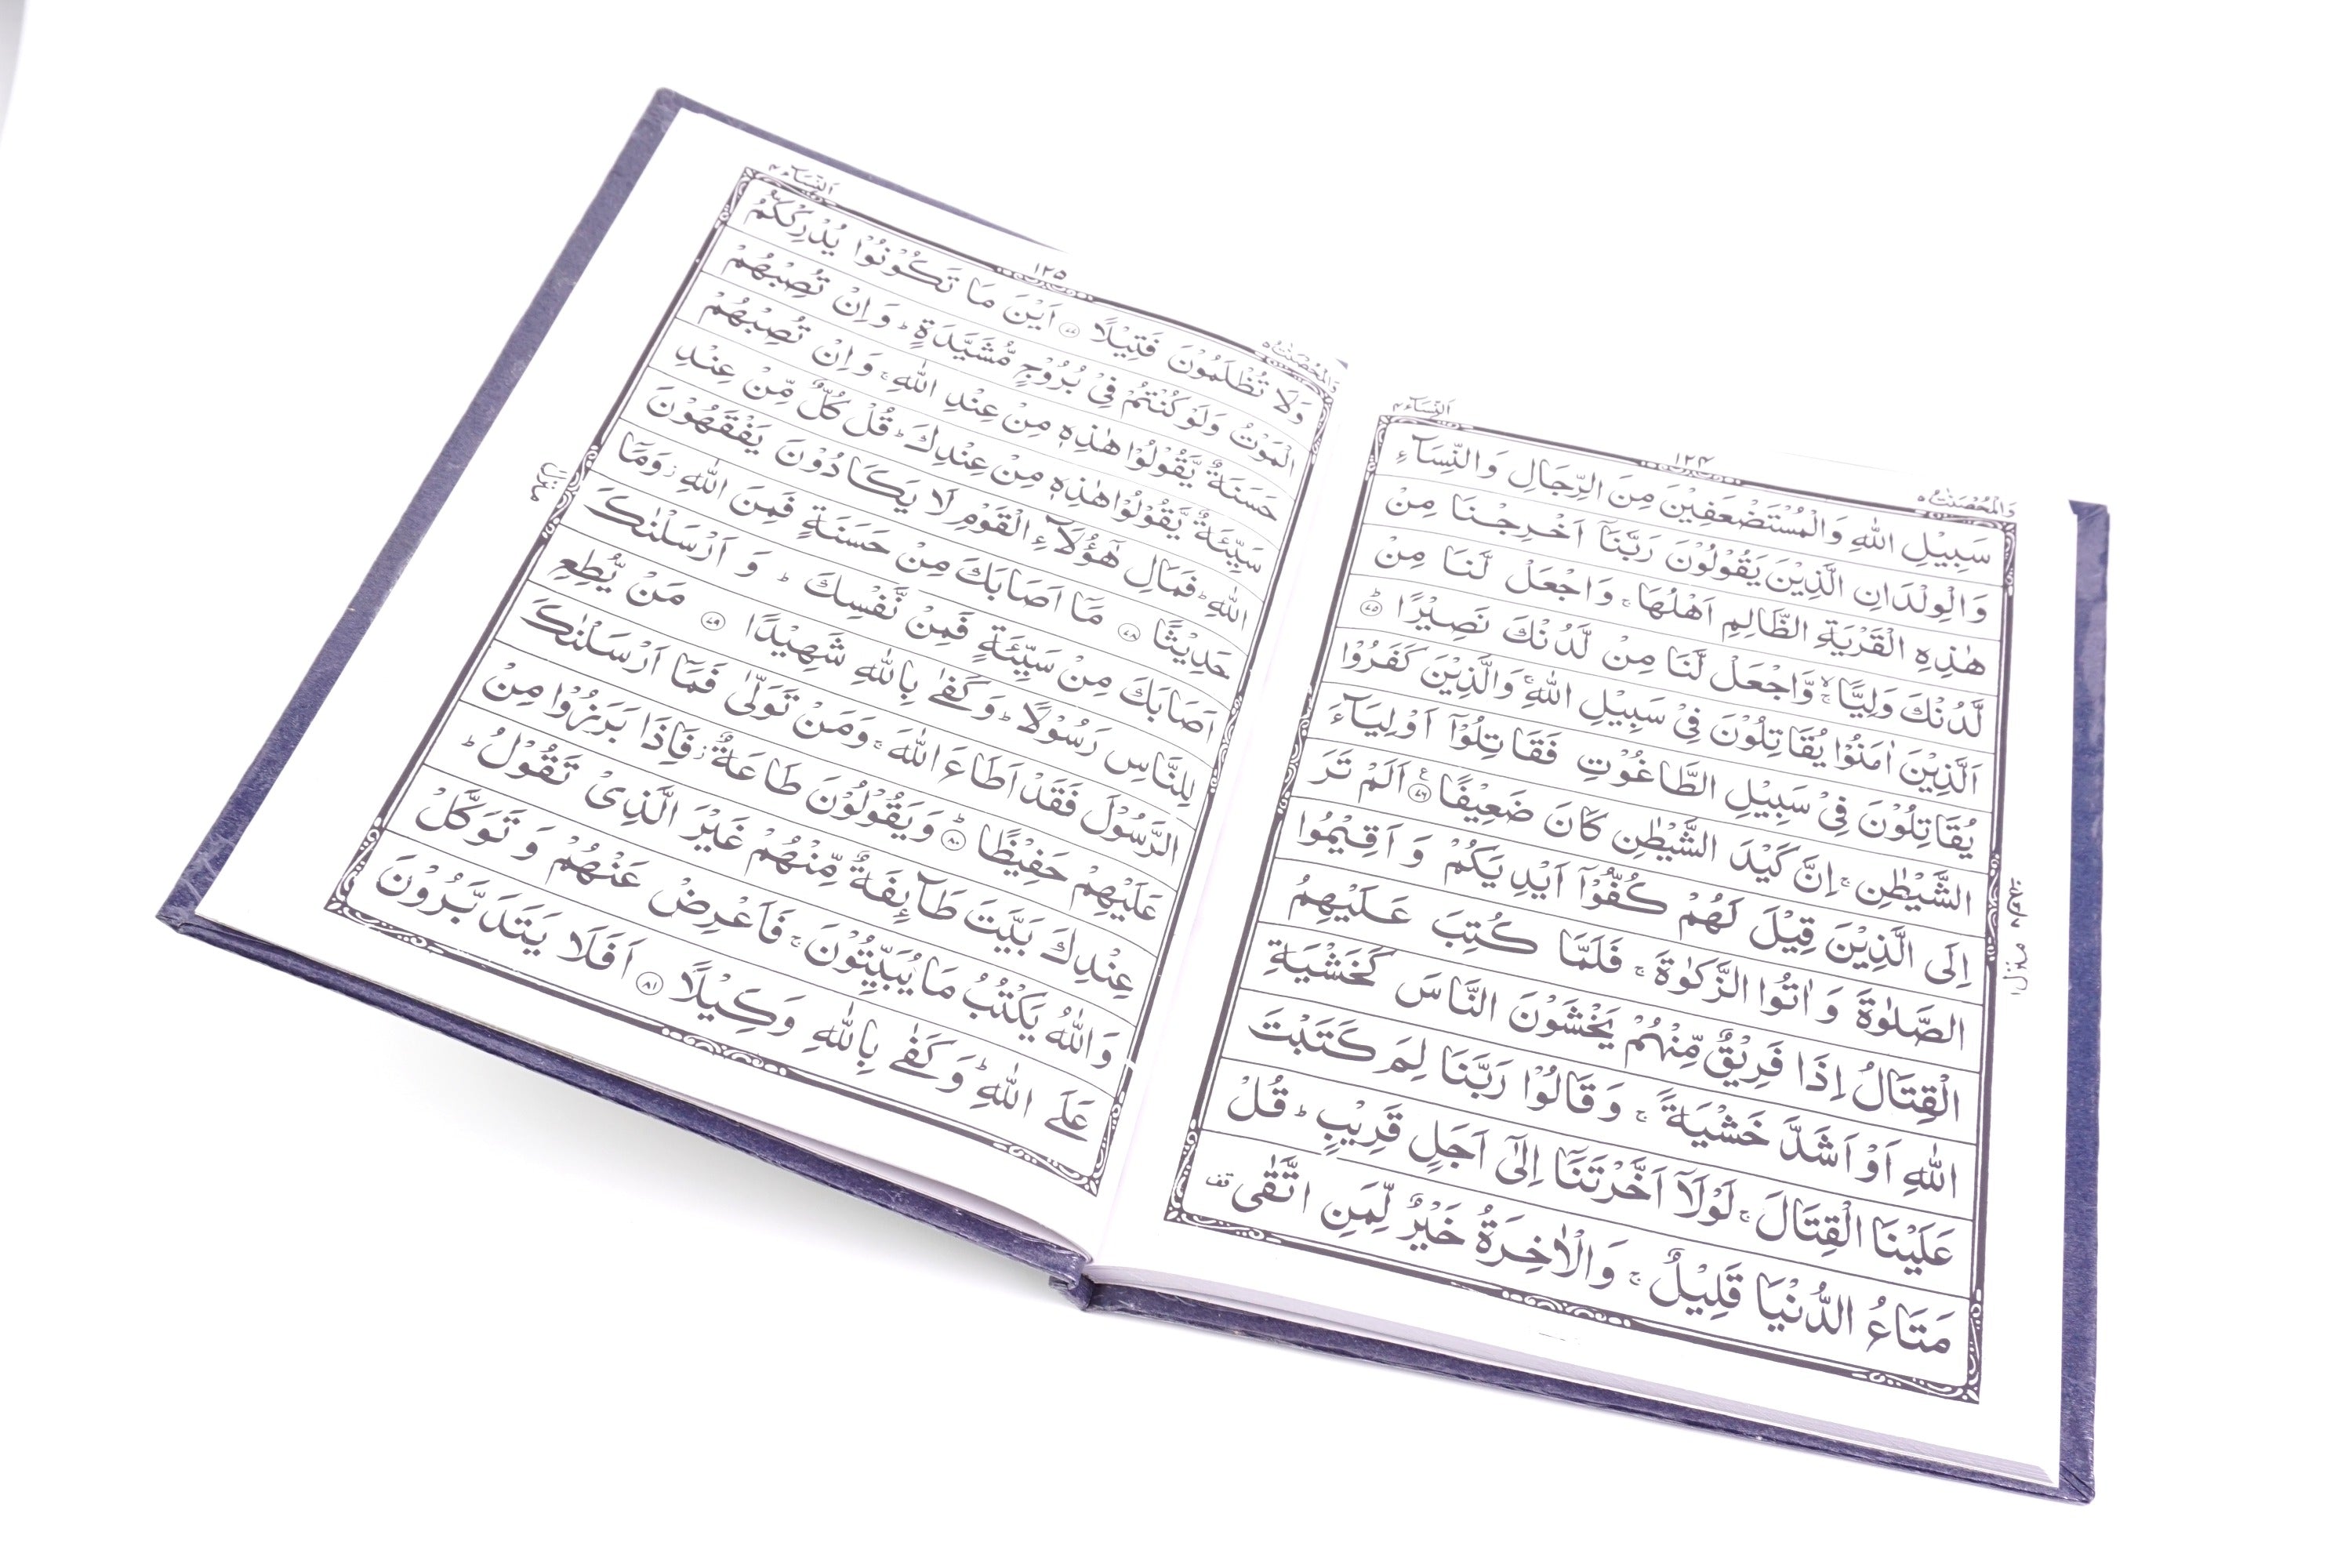 وَالْمُحْصَنٰتُ ٥
١٢٤
اَلنِّسَآء ٤
سَبِيْلِ اللّٰهِ وَالْمُسْتَضْعَفِيْنَ مِنَ الرِّجَالِ وَالنِّسَآءِ
وَالْوِلْدَانِ الَّذِيْنَ يَقُوْلُوْنَ رَبَّنَآ اَخْرِجْنَا مِنْ
هٰذِهِ الْقَرْيَةِ الظَّالِمِ اَهْلُهَا ۚ وَاجْعَلْ لَّنَا مِنْ
لَّدُنْكَ وَلِيًّا ۙۚ وَّاجْعَلْ لَّنَا مِنْ لَّدُنْكَ نَصِيْرًا ؕ ٧٥
اَلَّذِيْنَ اٰمَنُوْا يُقَاتِلُوْنَ فِيْ سَبِيْلِ اللّٰهِ ۚ وَالَّذِيْنَ كَفَرُوْا
يُقَاتِلُوْنَ فِيْ سَبِيْلِ الطَّاغُوْتِ فَقَاتِلُوْٓا اَوْلِيَآءَ
الشَّيْطٰنِ ۚ اِنَّ كَيْدَ الشَّيْطٰنِ كَانَ ضَعِيْفًا ٧٦ ع اَلَمْ تَرَ
اِلَى الَّذِيْنَ قِيْلَ لَهُمْ كُفُّوْٓا اَيْدِيَكُمْ وَ اَقِيْمُوا
الصَّلٰوةَ وَ اٰتُوا الزَّكٰوةَ ۚ فَلَمَّا كُتِبَ عَلَيْهِمُ
الْقِتَالُ اِذَا فَرِيْقٌ مِّنْهُمْ يَخْشَوْنَ النَّاسَ كَخَشْيَةِ
اللّٰهِ اَوْ اَشَدَّ خَشْيَةً ۚ وَ قَالُوْا رَبَّنَا لِمَ كَتَبْتَ
عَلَيْنَا الْقِتَالَ ۚ لَوْلَآ اَخَّرْتَنَآ اِلٰٓى اَجَلٍ قَرِيْبٍ ؕ قُلْ
مَتَاعُ الدُّنْيَا قَلِيْلٌ ۚ وَالْاٰخِرَةُ خَيْرٌ لِّمَنِ اتَّقٰى قف
منزل ١
وَالْمُحْصَنٰتُ ٥
١٢٥
اَلنِّسَآء ٤
وَلَا تُظْلَمُوْنَ فَتِيْلًا ٧٧ اَيْنَ مَا تَكُوْنُوْا يُدْرِكْكُّمُ
الْمَوْتُ وَلَوْ كُنْتُمْ فِيْ بُرُوْجٍ مُّشَيَّدَةٍ ؕ وَ اِنْ تُصِبْهُمْ
حَسَنَةٌ يَّقُوْلُوْا هٰذِهٖ مِنْ عِنْدِ اللّٰهِ ۚ وَ اِنْ تُصِبْهُمْ
سَيِّئَةٌ يَّقُوْلُوْا هٰذِهٖ مِنْ عِنْدِكَ ؕ قُلْ كُلٌّ مِّنْ عِنْدِ
اللّٰهِ ؕ فَمَالِ هٰٓؤُلَآءِ الْقَوْمِ لَا يَكَادُوْنَ يَفْقَهُوْنَ
حَدِيْثًا ٧٨ مَآ اَصَابَكَ مِنْ حَسَنَةٍ فَمِنَ اللّٰهِ ؗ وَمَآ
اَصَابَكَ مِنْ سَيِّئَةٍ فَمِنْ نَّفْسِكَ ؕ وَ اَرْسَلْنٰكَ
لِلنَّاسِ رَسُوْلًا ؕ وَكَفٰى بِاللّٰهِ شَهِيْدًا ٧٩ مَنْ يُّطِعِ
الرَّسُوْلَ فَقَدْ اَطَاعَ اللّٰهَ ۚ وَمَنْ تَوَلّٰى فَمَآ اَرْسَلْنٰكَ
عَلَيْهِمْ حَفِيْظًا ؕ ٨٠ وَ يَقُوْلُوْنَ طَاعَةٌ ؗ فَاِذَا بَرَزُوْا مِنْ
عِنْدِكَ بَيَّتَ طَآئِفَةٌ مِّنْهُمْ غَيْرَ الَّذِيْ تَقُوْلُ ؕ
وَاللّٰهُ يَكْتُبُ مَا يُبَيِّتُوْنَ ۚ فَاَعْرِضْ عَنْهُمْ وَ تَوَكَّلْ
عَلَى اللّٰهِ ؕ وَ كَفٰى بِاللّٰهِ وَكِيْلًا ٨١ اَفَلَا يَتَدَبَّرُوْنَ
منزل ١